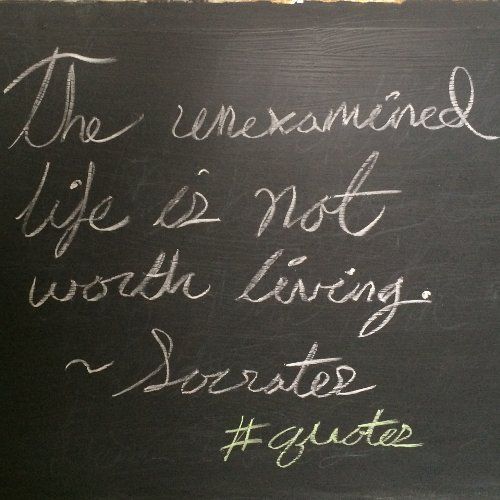 The unexamined
life is not
worth living.
~ Socrates
#quotes